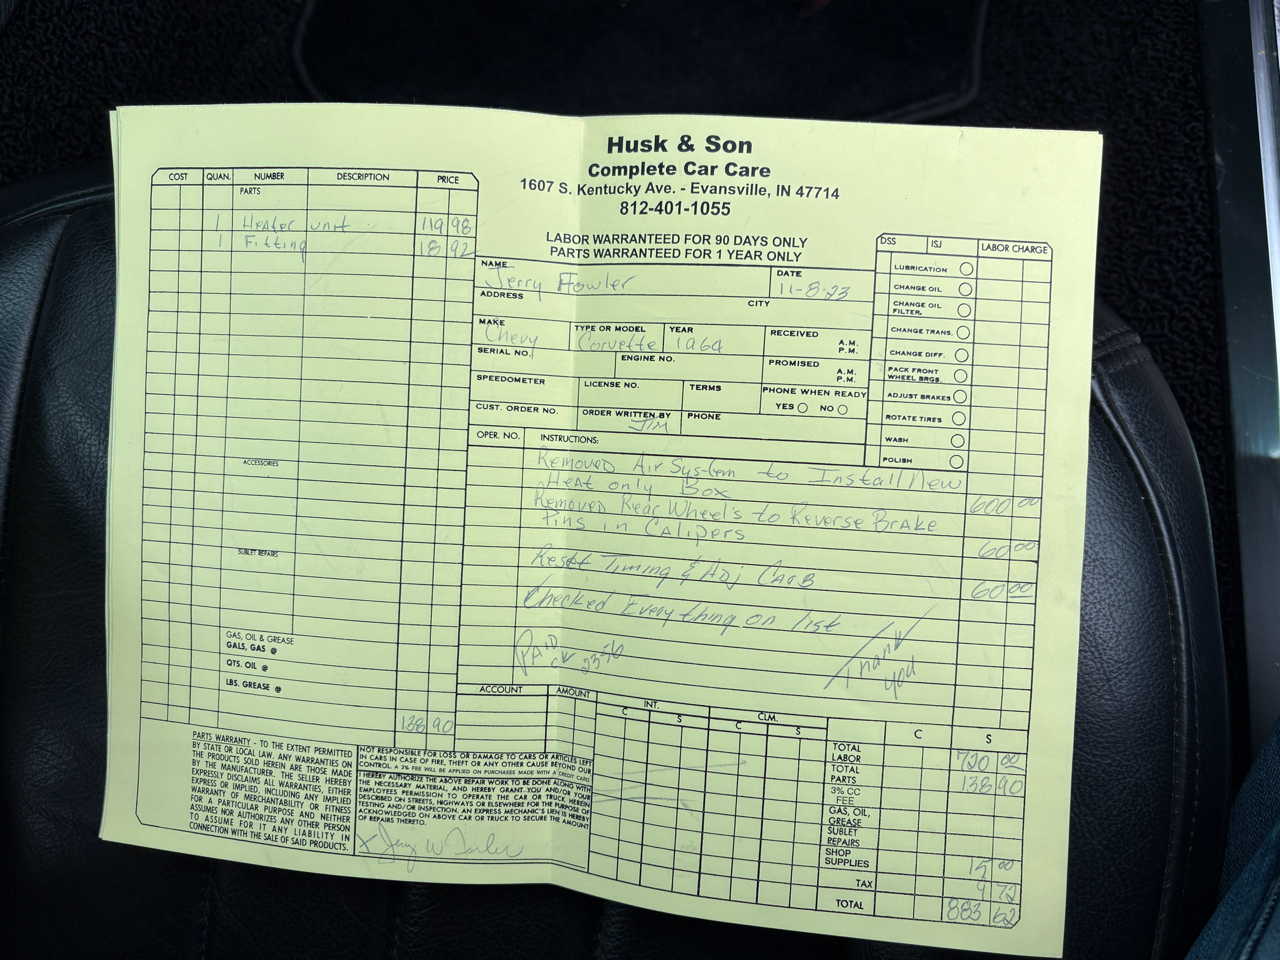 Husk & Son
Complete Car Care
1607 S. Kentucky Ave. - Evansville, IN 47714
812-401-1055
LABOR WARRANTEED FOR 90 DAYS ONLY
PARTS WARRANTEED FOR 1 YEAR ONLY
COST QUAN. NUMBER DESCRIPTION PRICE
PARTS
1 Heater unit 119 98
1 Fitting 18 92
ACCESSORIES
SUBLET REPAIRS
GAS, OIL & GREASE
GALS, GAS @
QTS. OIL @
LBS. GREASE @
138 90
NAME Jerry Fowler DATE 11-8-23
ADDRESS CITY
MAKE Chevy TYPE OR MODEL Corvette YEAR 1964 RECEIVED A.M. P.M.
SERIAL NO. ENGINE NO. PROMISED A.M. P.M.
SPEEDOMETER LICENSE NO. TERMS PHONE WHEN READY
YES NO
CUST. ORDER NO. ORDER WRITTEN BY JIM PHONE
DSS ISJ LABOR CHARGE
LUBRICATION
CHANGE OIL
CHANGE OIL FILTER,
CHANGE TRANS.
CHANGE DIFF.
PACK FRONT WHEEL BRGS.
ADJUST BRAKES
ROTATE TIRES
WASH
POLISH
OPER. NO. INSTRUCTIONS:
Removed Air System to Install New
Heat only Box 600 00
Removed Rear Wheel's to Reverse Brake
Pins in Calipers 60 00
Reset Timing & Adj Carb 60 00
Checked Everything on list
PAID CK 2356
Thank you
ACCOUNT AMOUNT INT. CLM.
C S C S C S
TOTAL LABOR 720 00
TOTAL PARTS 138 90
3% CC FEE
GAS, OIL, GREASE
SUBLET REPAIRS
SHOP SUPPLIES 15 00
TAX 9 72
TOTAL 883 62
PARTS WARRANTY - TO THE EXTENT PERMITTED
BY STATE OR LOCAL LAW. ANY WARRANTIES ON
THE PRODUCTS SOLD HEREIN ARE THOSE MADE
BY THE MANUFACTURER. THE SELLER HEREBY
EXPRESSLY DISCLAIMS ALL WARRANTIES, EITHER
EXPRESS OR IMPLIED, INCLUDING ANY IMPLIED
WARRANTY OF MERCHANTABILITY OR FITNESS
FOR A PARTICULAR PURPOSE AND NEITHER
ASSUMES NOR AUTHORIZES ANY OTHER PERSON
TO ASSUME FOR IT ANY LIABILITY IN
CONNECTION WITH THE SALE OF SAID PRODUCTS.
NOT RESPONSIBLE FOR LOSS OR DAMAGE TO CARS OR ARTICLES LEFT
IN CARS IN CASE OF FIRE, THEFT OR ANY OTHER CAUSE BEYOND OUR
CONTROL. A 3% FEE WILL BE APPLIED ON PURCHASES MADE WITH A CREDIT CARD.
I HEREBY AUTHORIZE THE ABOVE REPAIR WORK TO BE DONE ALONG WITH
THE NECESSARY MATERIAL, AND HEREBY GRANT YOU AND/OR YOUR
EMPLOYEES PERMISSION TO OPERATE THE CAR OR TRUCK HEREIN
DESCRIBED ON STREETS, HIGHWAYS OR ELSEWHERE FOR THE PURPOSE OF
TESTING AND/OR INSPECTION. AN EXPRESS MECHANIC'S LIEN IS HEREBY
ACKNOWLEDGED ON ABOVE CAR OR TRUCK TO SECURE THE AMOUNT
OF REPAIRS THERETO.
X Jerry W Fowler